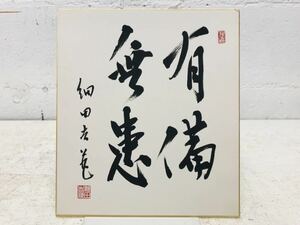 有備
無患
細田吉蔵